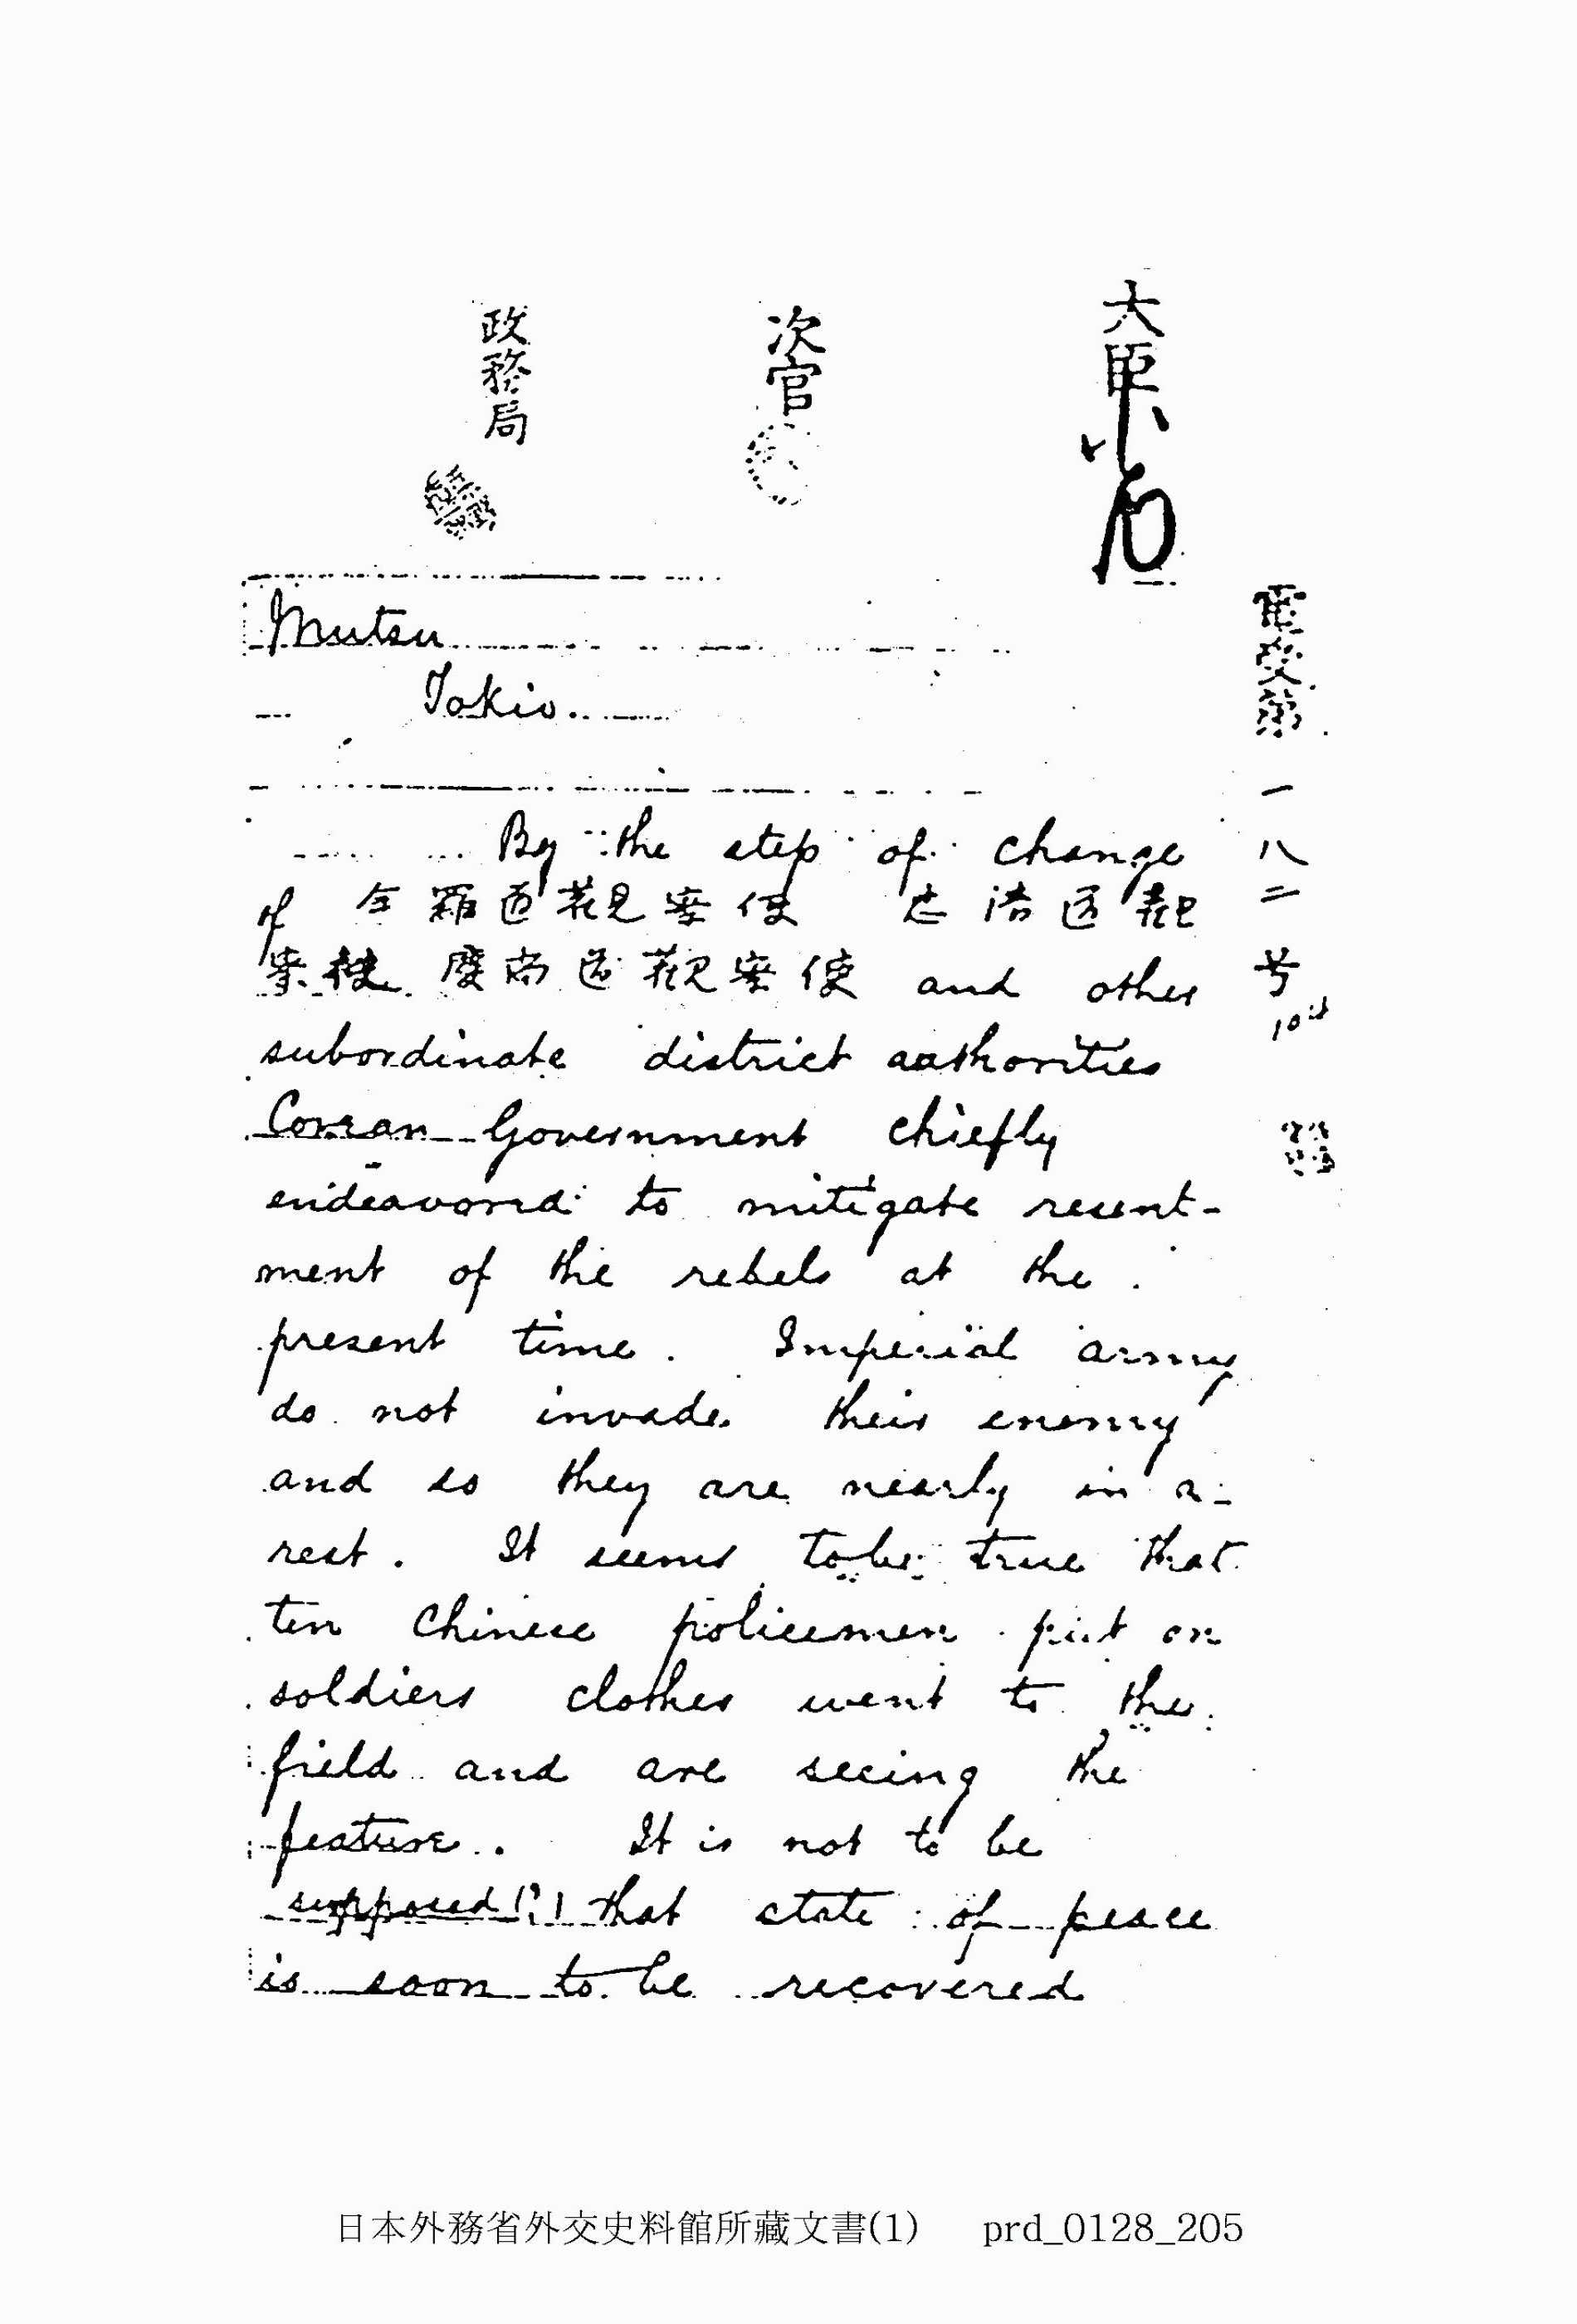 大臣
次官
政務局
電受第一八二号
Mutsu
Tokio.
By the step of change
of 全羅道觀察使 忠淸道觀
察使 慶尚道觀察使 and other
subordinate district authorities
Corean Government chiefly
endeavored to mitigate resent-
ment of the rebels at the
present time. Imperial army
do not invade their enemy
and so they are nearly in a
rest. It seems to be true that
ten Chinese policemen put on
soldiers clothes went to the
field and are seeing the
feature. It is not to be
supposed (?) that state of peace
is soon to be recovered
日本外務省外交史料館所藏文書(1) prd_0128_205